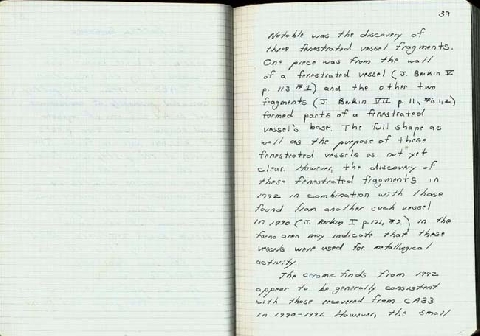 39
Notable was the discovery of
three fenestrated vessel fragments.
One piece was from the wall
of a fenestrated vessel (J. Berkin V
p. 113 #1) and the other two
fragments (J. Berkin VII p. 11, #1,2)
formed parts of a fenestrated
vessel's base. The full shape as
well as the purpose of these
fenestrated vessels is not yet
clear. However, the discovery of
these fenestrated fragments in
1992 in combination with those
found from another such vessel
in 1990 (J. Berkin I p. 122, #2) in the
same area may indicate that these
vessels were used for metallogical
activity.
The ceramic finds from 1992
appear to be generally consistent
with those recovered from CA33
in 1990-1991. However, the small